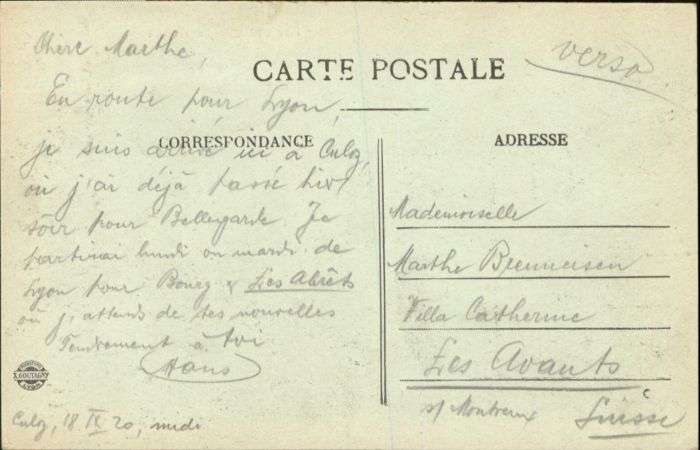 Chère Marthe,
verso
CARTE POSTALE
En route pour Lyon,
CORRESPONDANCE
ADRESSE
je suis arrivé ici à Culoz,
où j'ai déjà passé hier
soir pour Bellegarde. Je
partirai lundi ou mardi de
Lyon pour Bourg & Les Abrêts
où j'attends de tes nouvelles
Tendrement à toi
Hans
Culoz, 18 IX 20, midi
Mademoiselle
Marthe Brenneisen
Villa Catherine
Les Avants
s/ Montreux
Suisse
GOUTAGNY
LYON